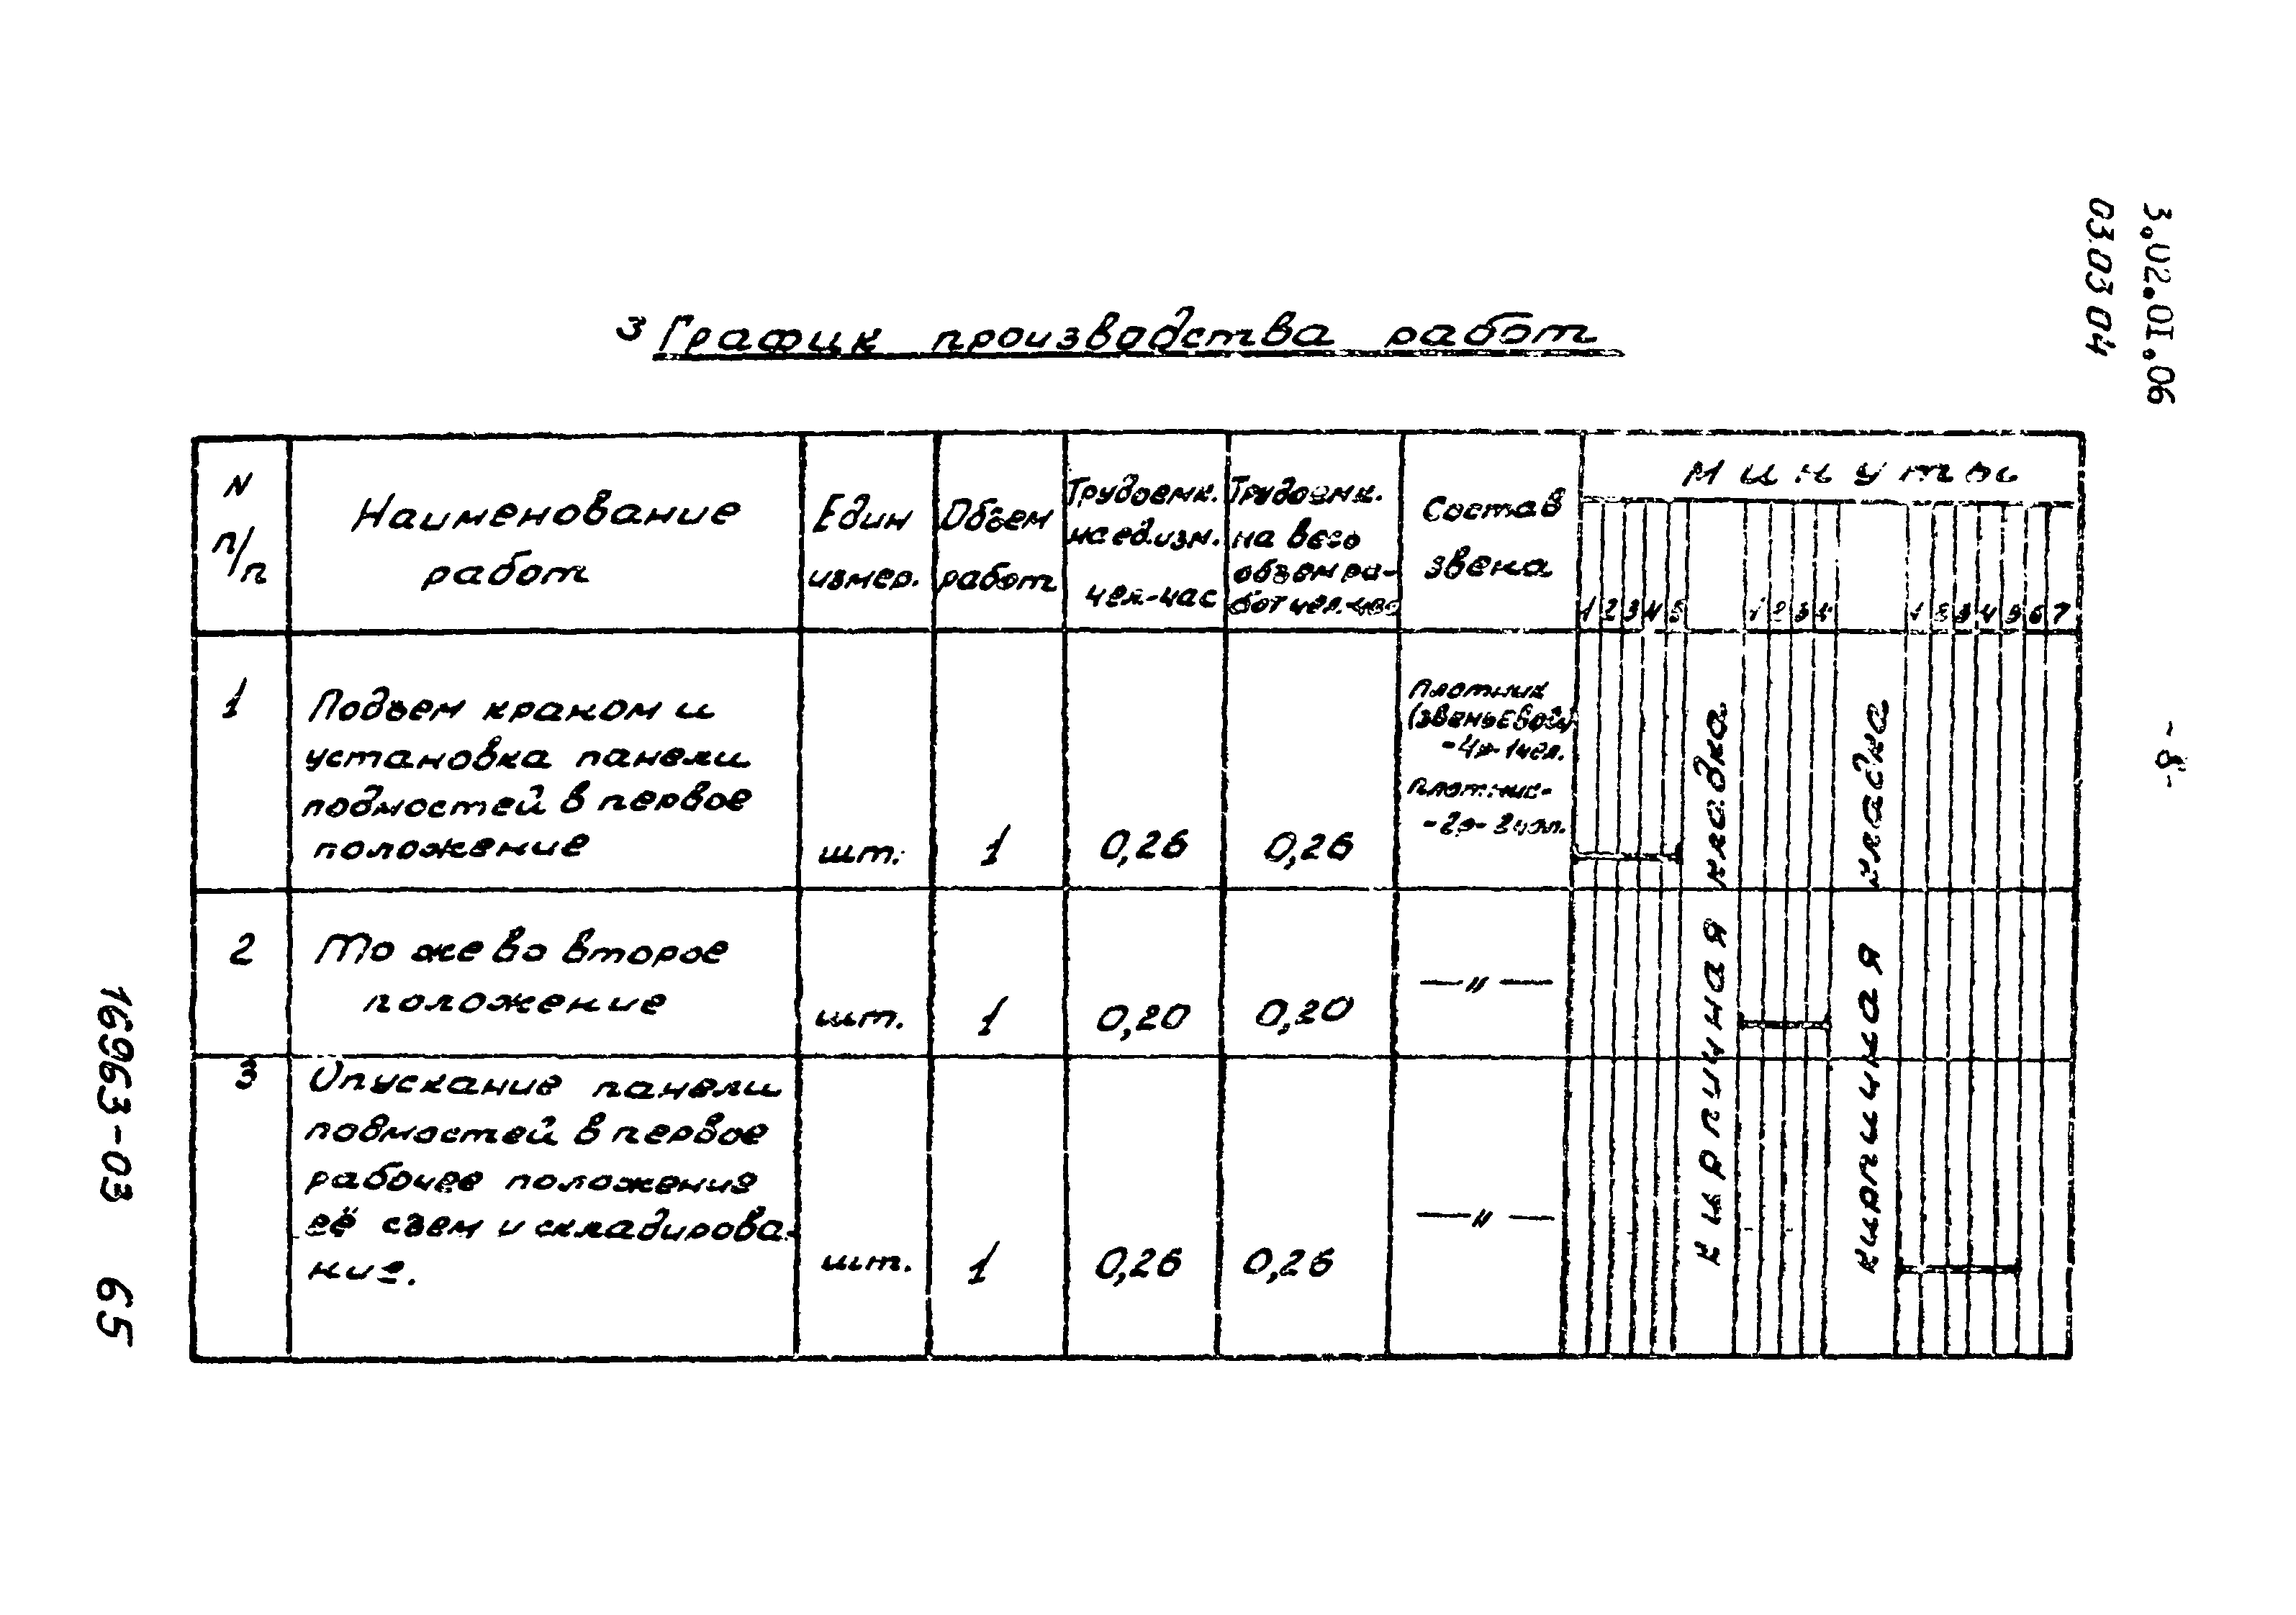 3.02.01.06
03.03 04
3 График производства работ
N п/п
Наименование работ
Един измер.
Объем работ
Трудоемк. на ед.изм. чел-час
Трудоемк. на весо объем ра- бот чел.-час
Состав звена
Минуты
1 2 3 4 5
1 2 3 4
1 2 3 4 5 6 7
1
Подъем краном и
установка панели
подмостей в первое
положение
шт.
1
0,26
0,26
Плотник
(звеньевой)
-4р-1чел.
Плотник-
-2р-2чел.
2
То же во второе
положение
шт.
1
0,20
0,20
—"—
3
Опускание панели
подмостей в первое
рабочее положения
её съем и складирова-
ние.
шт.
1
0,26
0,26
—"—
кирпичная кладка
кирпичная кладка
-8-
16963-03 65